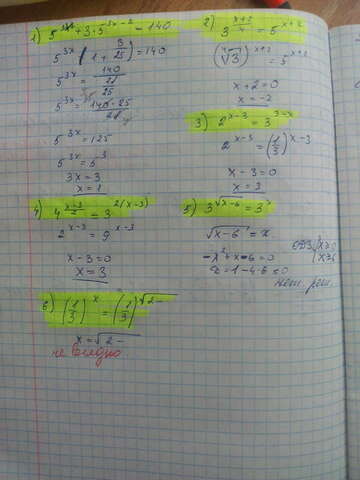 1) 5^{3x} + 3·5^{3x-2} = 140
5^{3x} (1 + 3/25) = 140
5^{3x} = 140 / (28/25)
5^{3x} = 140·25 / 28
5^{3x} = 125
5^{3x} = 5^3
3x = 3
x = 1
2) 3^{(x+2)/4} = 5^{x+2}
(∜3)^{x+2} = 5^{x+2}
x + 2 = 0
x = -2
3) 2^{x-3} = 3^{3-x}
2^{x-3} = (1/3)^{x-3}
x - 3 = 0
x = 3
4) 4^{(x-3)/2} = 3^{2(x-3)}
2^{x-3} = 9^{x-3}
x - 3 = 0
x = 3
5) 3^{√(x-6)} = 3^x
√(x-6) = x
-x² + x - 6 = 0
ОДЗ { x≥0
x≥6
= 1 - 4·6 ≤ 0
нет реш.
6) (1/3)^x = (1/3)^{√(2-
x = √(2-
не видно